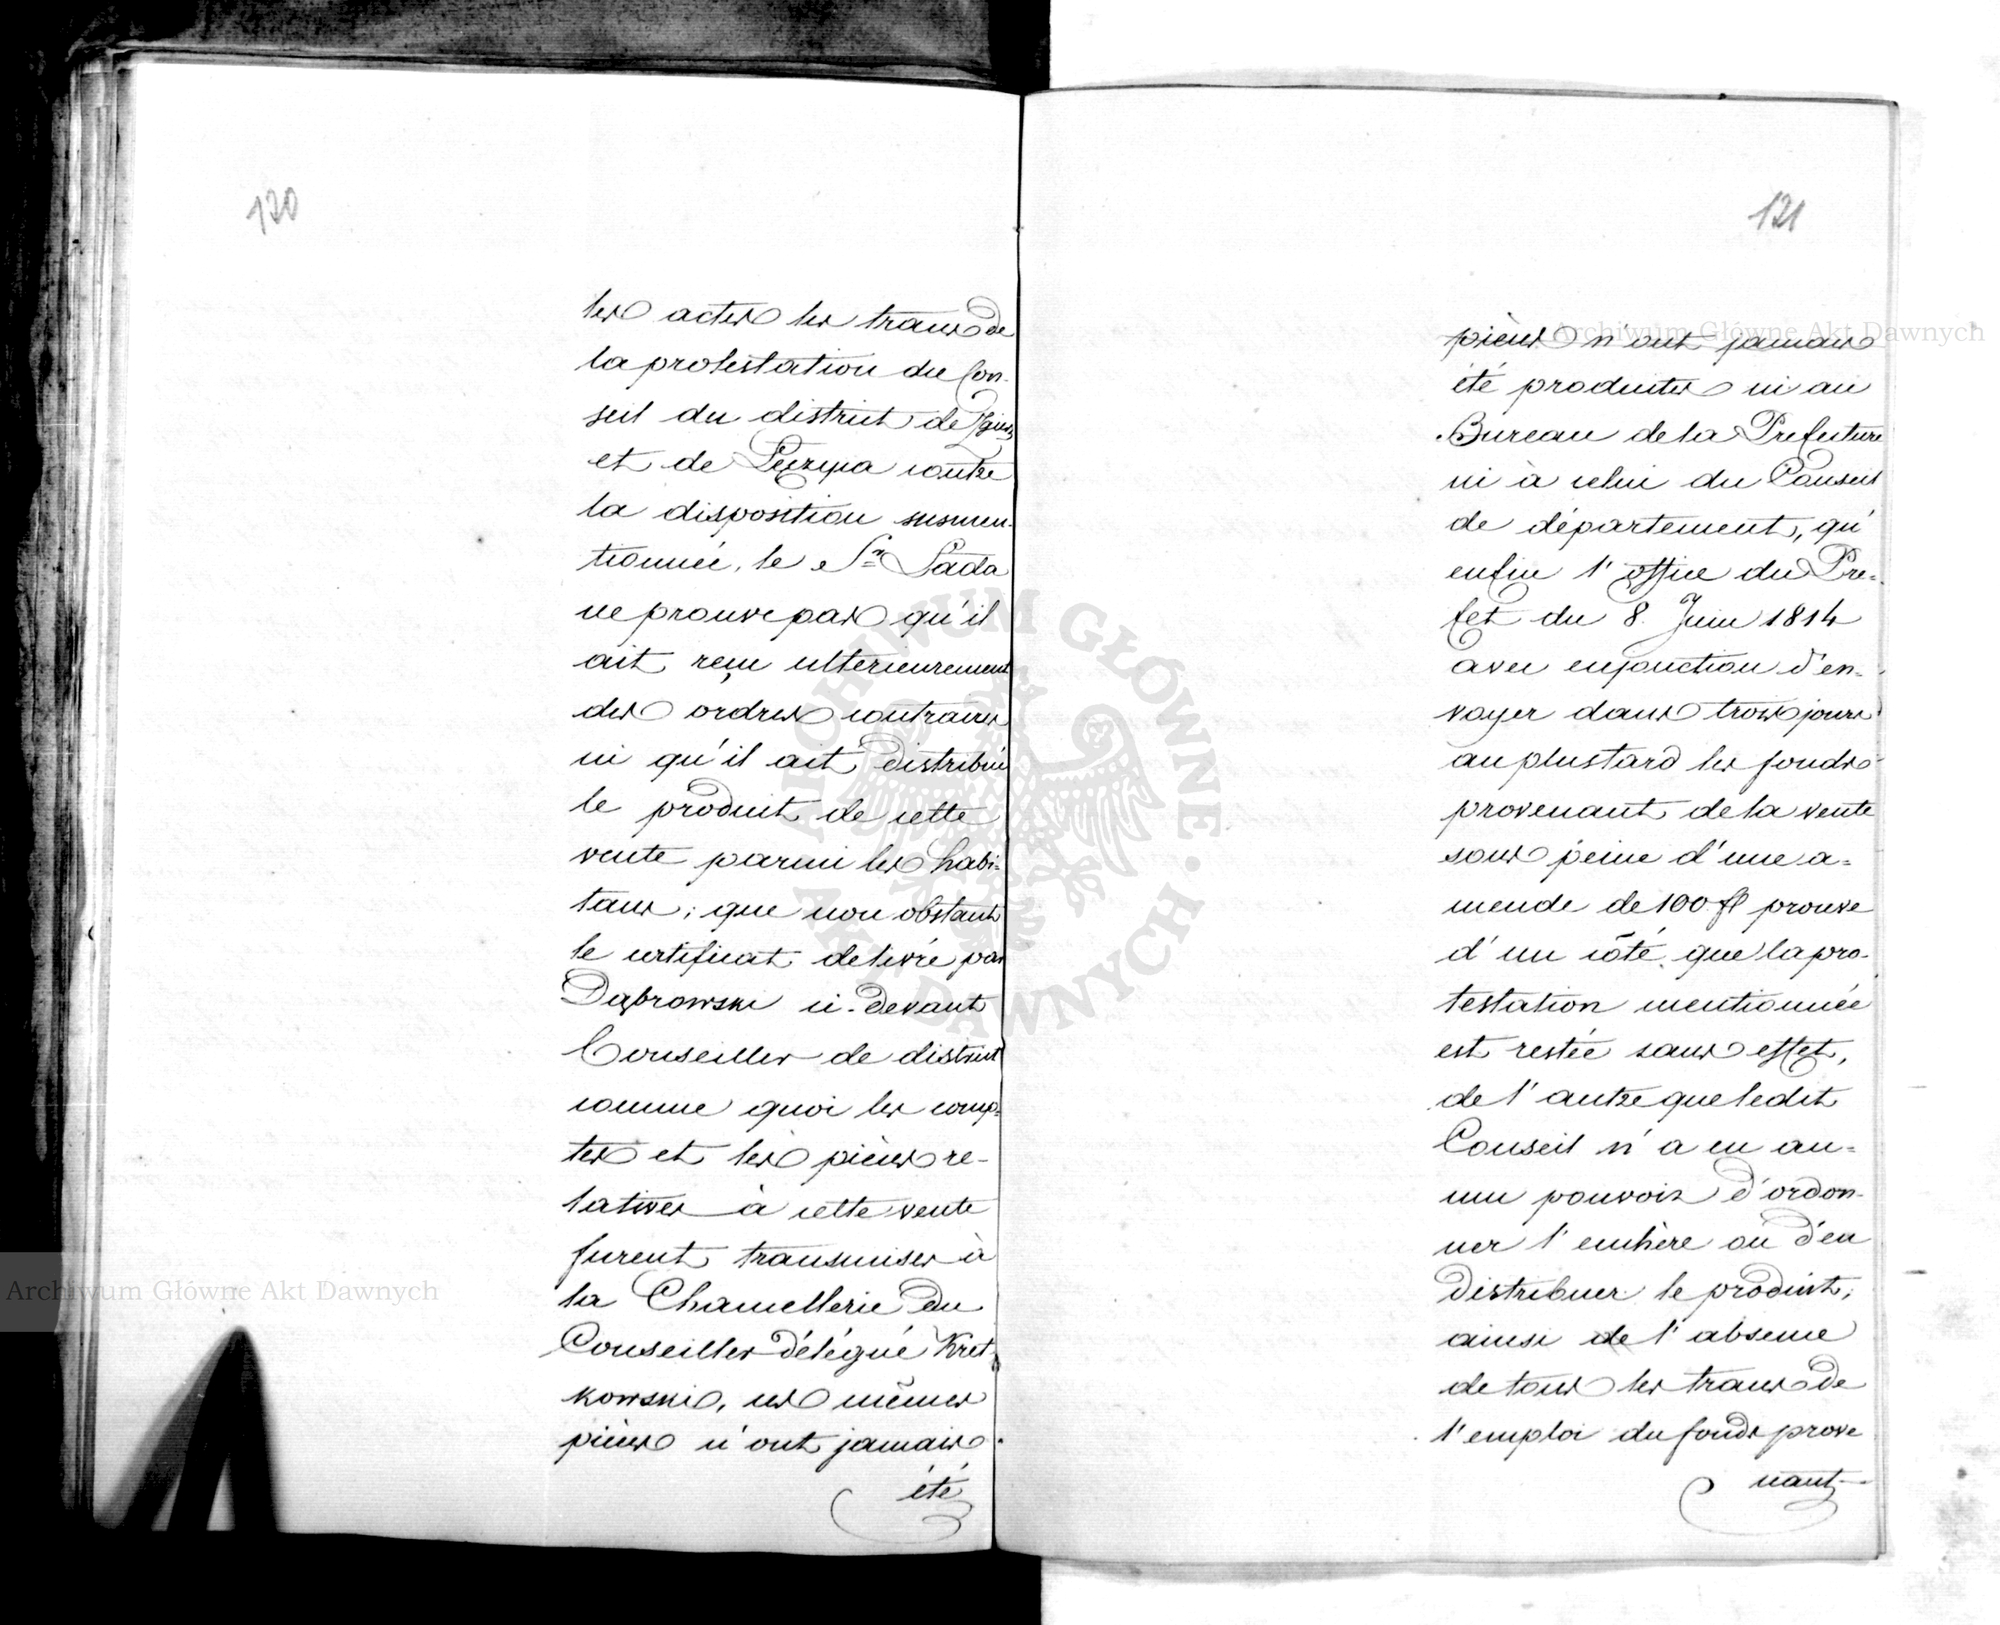 120
les actes les traces de
la protestation du Con-
seil du district de Zgierz
et de Łęczyca contre
la disposition susmen-
tionnée, le Sr Lada
ne prouve pas qu'il
ait reçu ulterieurement
des ordres contraires
ni qu'il ait distribué
le produit de cette
vente parmi les habi-
tans; que non obstant
le certificat delivré par
Dąbrowski ci-devant
Conseiller de district
comme quoi les comp-
tes et les pièces re-
latives à cette vente
furent transmises à
la Chancellerie du
Conseiller délégué Kret-
kowski, ces mêmes
pièces n'ont jamais
été
121
pièces n'ont jamais
été produites ni au
Bureau de la Prefecture
ni à celui du Conseil
de département, qu'
enfin l'office du Pre-
fet du 8. Juin 1814
avec enjonction d'en-
voyer dans trois jours
au plustard les fonds
provenant de la vente
sous peine d'une a-
mende de 100 fl prouve
d'un côté, que la pro-
testation mentionnée
est restée sans effet,
de l'autre que ledit
Conseil n'a eu au-
cun pouvoir d'ordon-
ner l'enchère où d'en
distribuer le produit;
ainsi de l'absence
de tous les traces de
l'emploi du fonds prove
nant
Archiwum Główne Akt Dawnych
Archiwum Główne Akt Dawnych
ARCHIWUM GŁÓWNE · AKT DAWNYCH ·